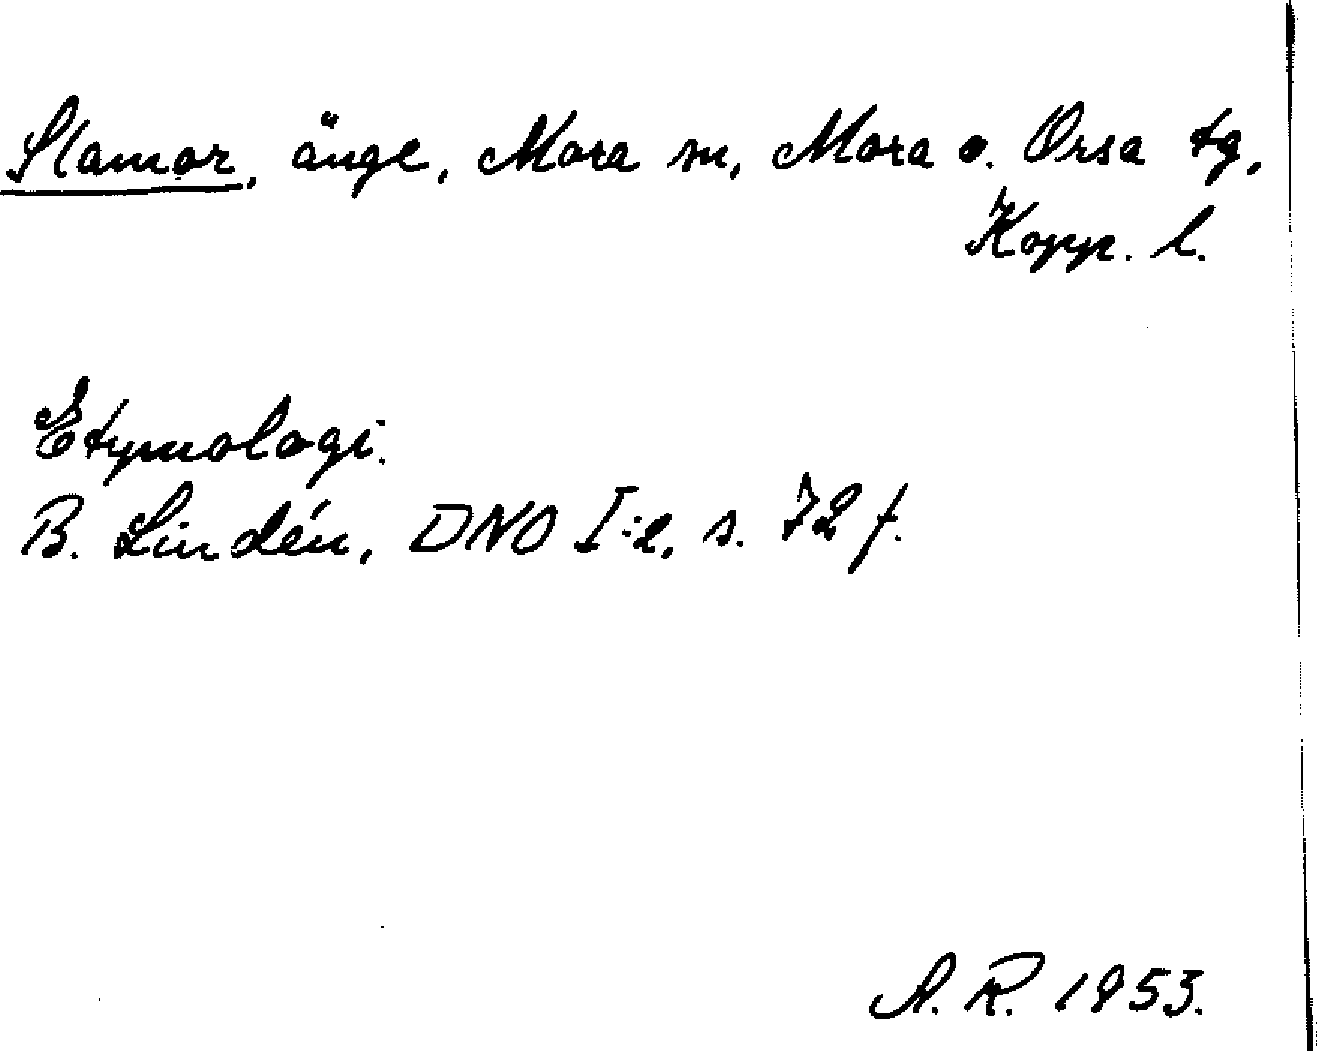 Slamor, änge, Mora sn, Mora o. Orsa tg,
Kopp. l.
Etymologi.
B. Lindén, DNO I:2, s. 72 f.
A. R. 1953.